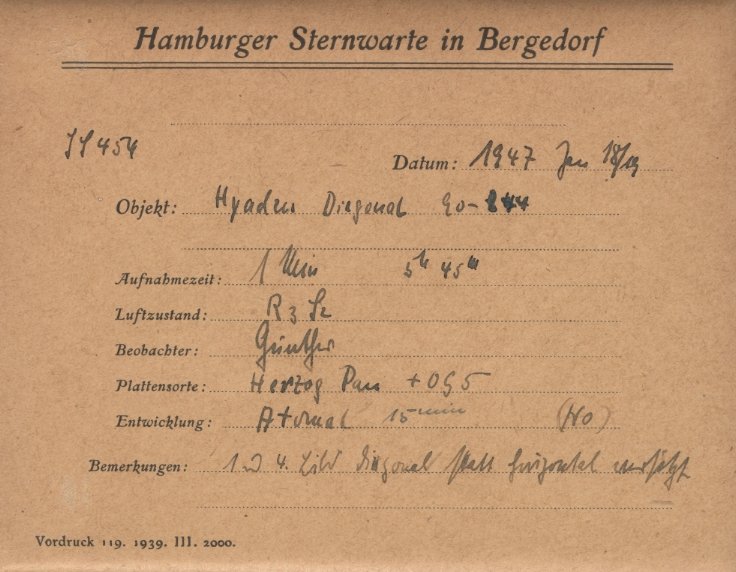 Hamburger Sternwarte in Bergedorf
454
Datum: 1947 Jan 18/19
Objekt: Hyaden Diagonal 90-
Aufnahmezeit: 1 Min 5h 45m
Luftzustand: R 3 S2
Beobachter: Günther
Plattensorte: Herzog Pan + OG 5
Entwicklung: Atomal 15 min
Bemerkungen: 1 4. Bild diagonal statt horizontal
Vordruck 119. 1939. III. 2000.